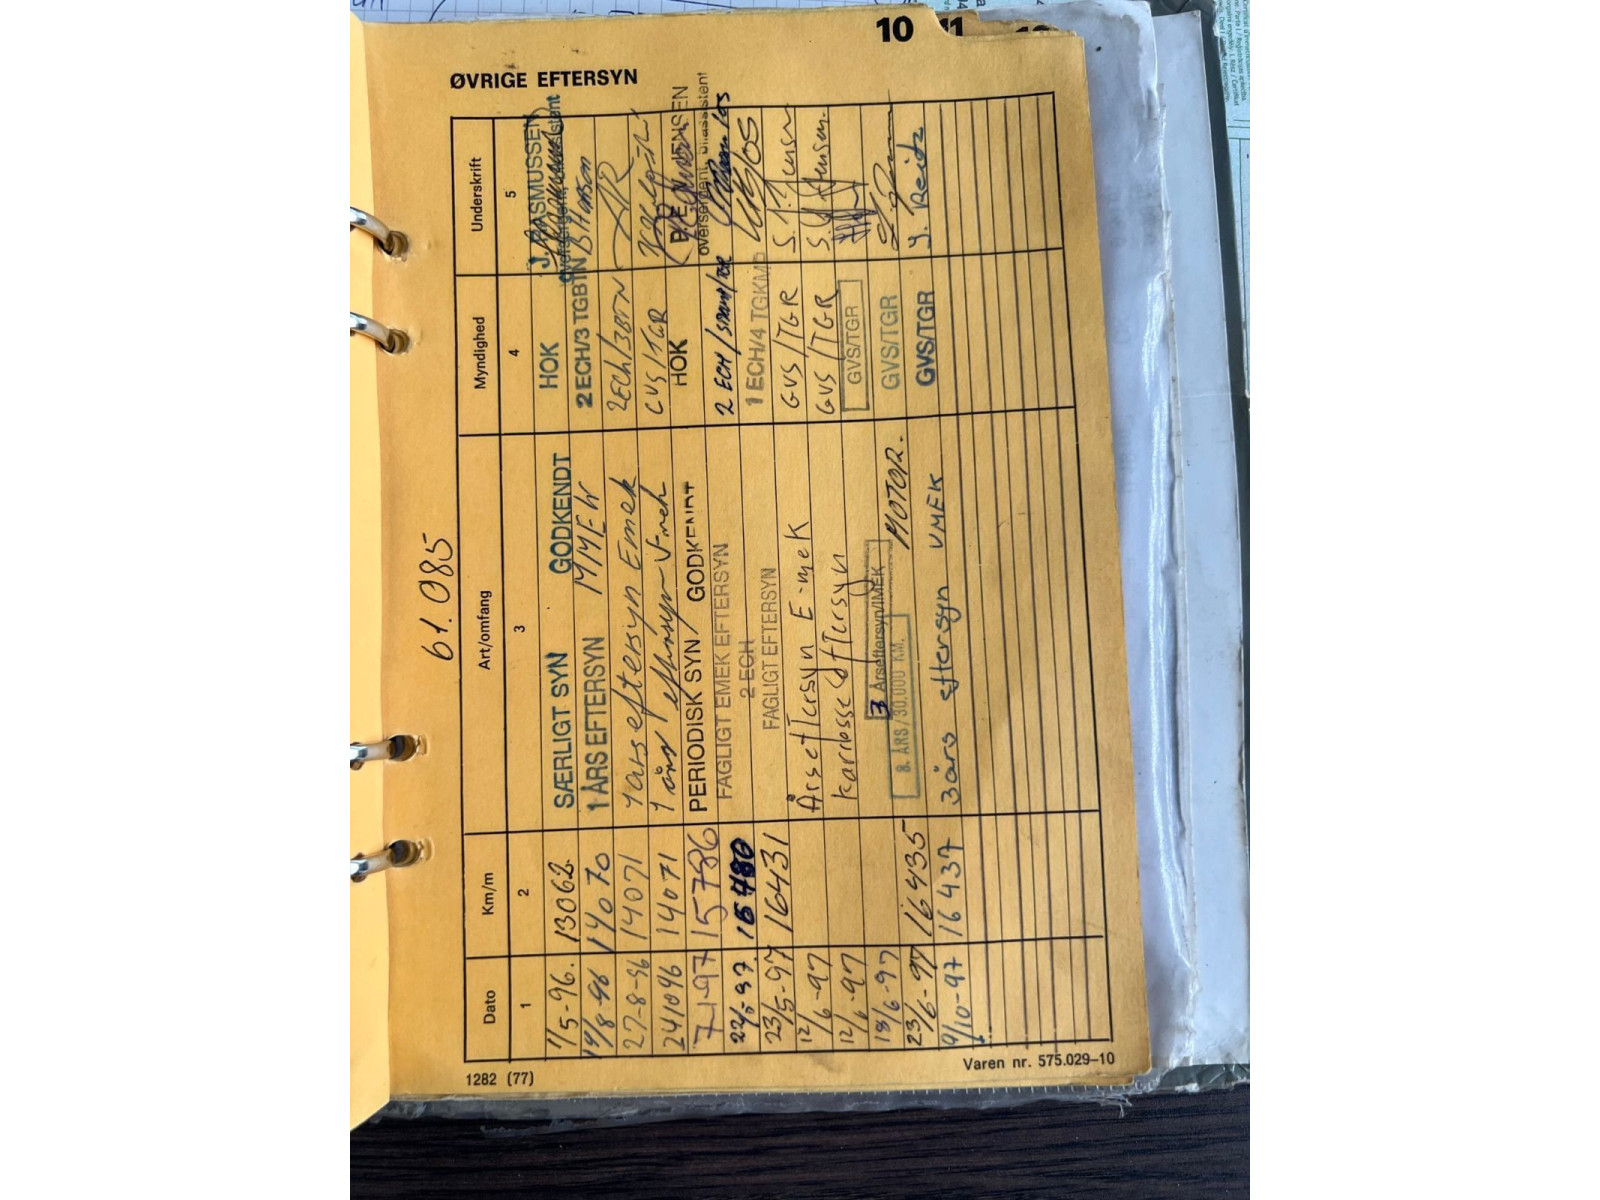 10 11 12
ØVRIGE EFTERSYN
61.085
Dato Km/m Art/omfang Myndighed Underskrift
1 2 3 4 5
1/5-96. 13062 SÆRLIGT SYN GODKENDT HOK J. RASMUSSEN
19/8-96 14070 1 ÅRS EFTERSYN 2 ECH/3 TGBTN
27-8-96 14071 1 års eftersyn Emek 2ECH/3BTN
241096 14071 1 års eftersyn GVS/TGR
7-1-97 15786 PERIODISK SYN / GODKENDT HOK JENSEN
oversergent, bilassistent
22/5-97. FAGLIGT EMEK EFTERSYN 2 ECH
2 ECH
23/5-97 16431 FAGLIGT EFTERSYN 1 ECH/4 TGKMD
12/6-97 Årseftersyn E-mek GVS/TGR S. Jensen
12/6-97 karosse eftersyn GVS/TGR S. Jensen.
18/6-97 3 Årseftersyn/IMEK GVS/TGR
23/6-97 16435 8. ÅRS / 30.000 KM. MOTOR. GVS/TGR
9/10-97 16437 3 års eftersyn VMEK GVS/TGR Y. Reitz
1282 (77)
Varen nr. 575.029-10